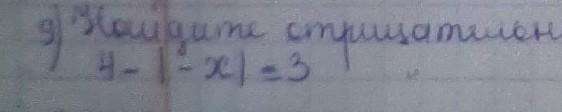 9) Найдите отрицательн
4 - | - x | = 3